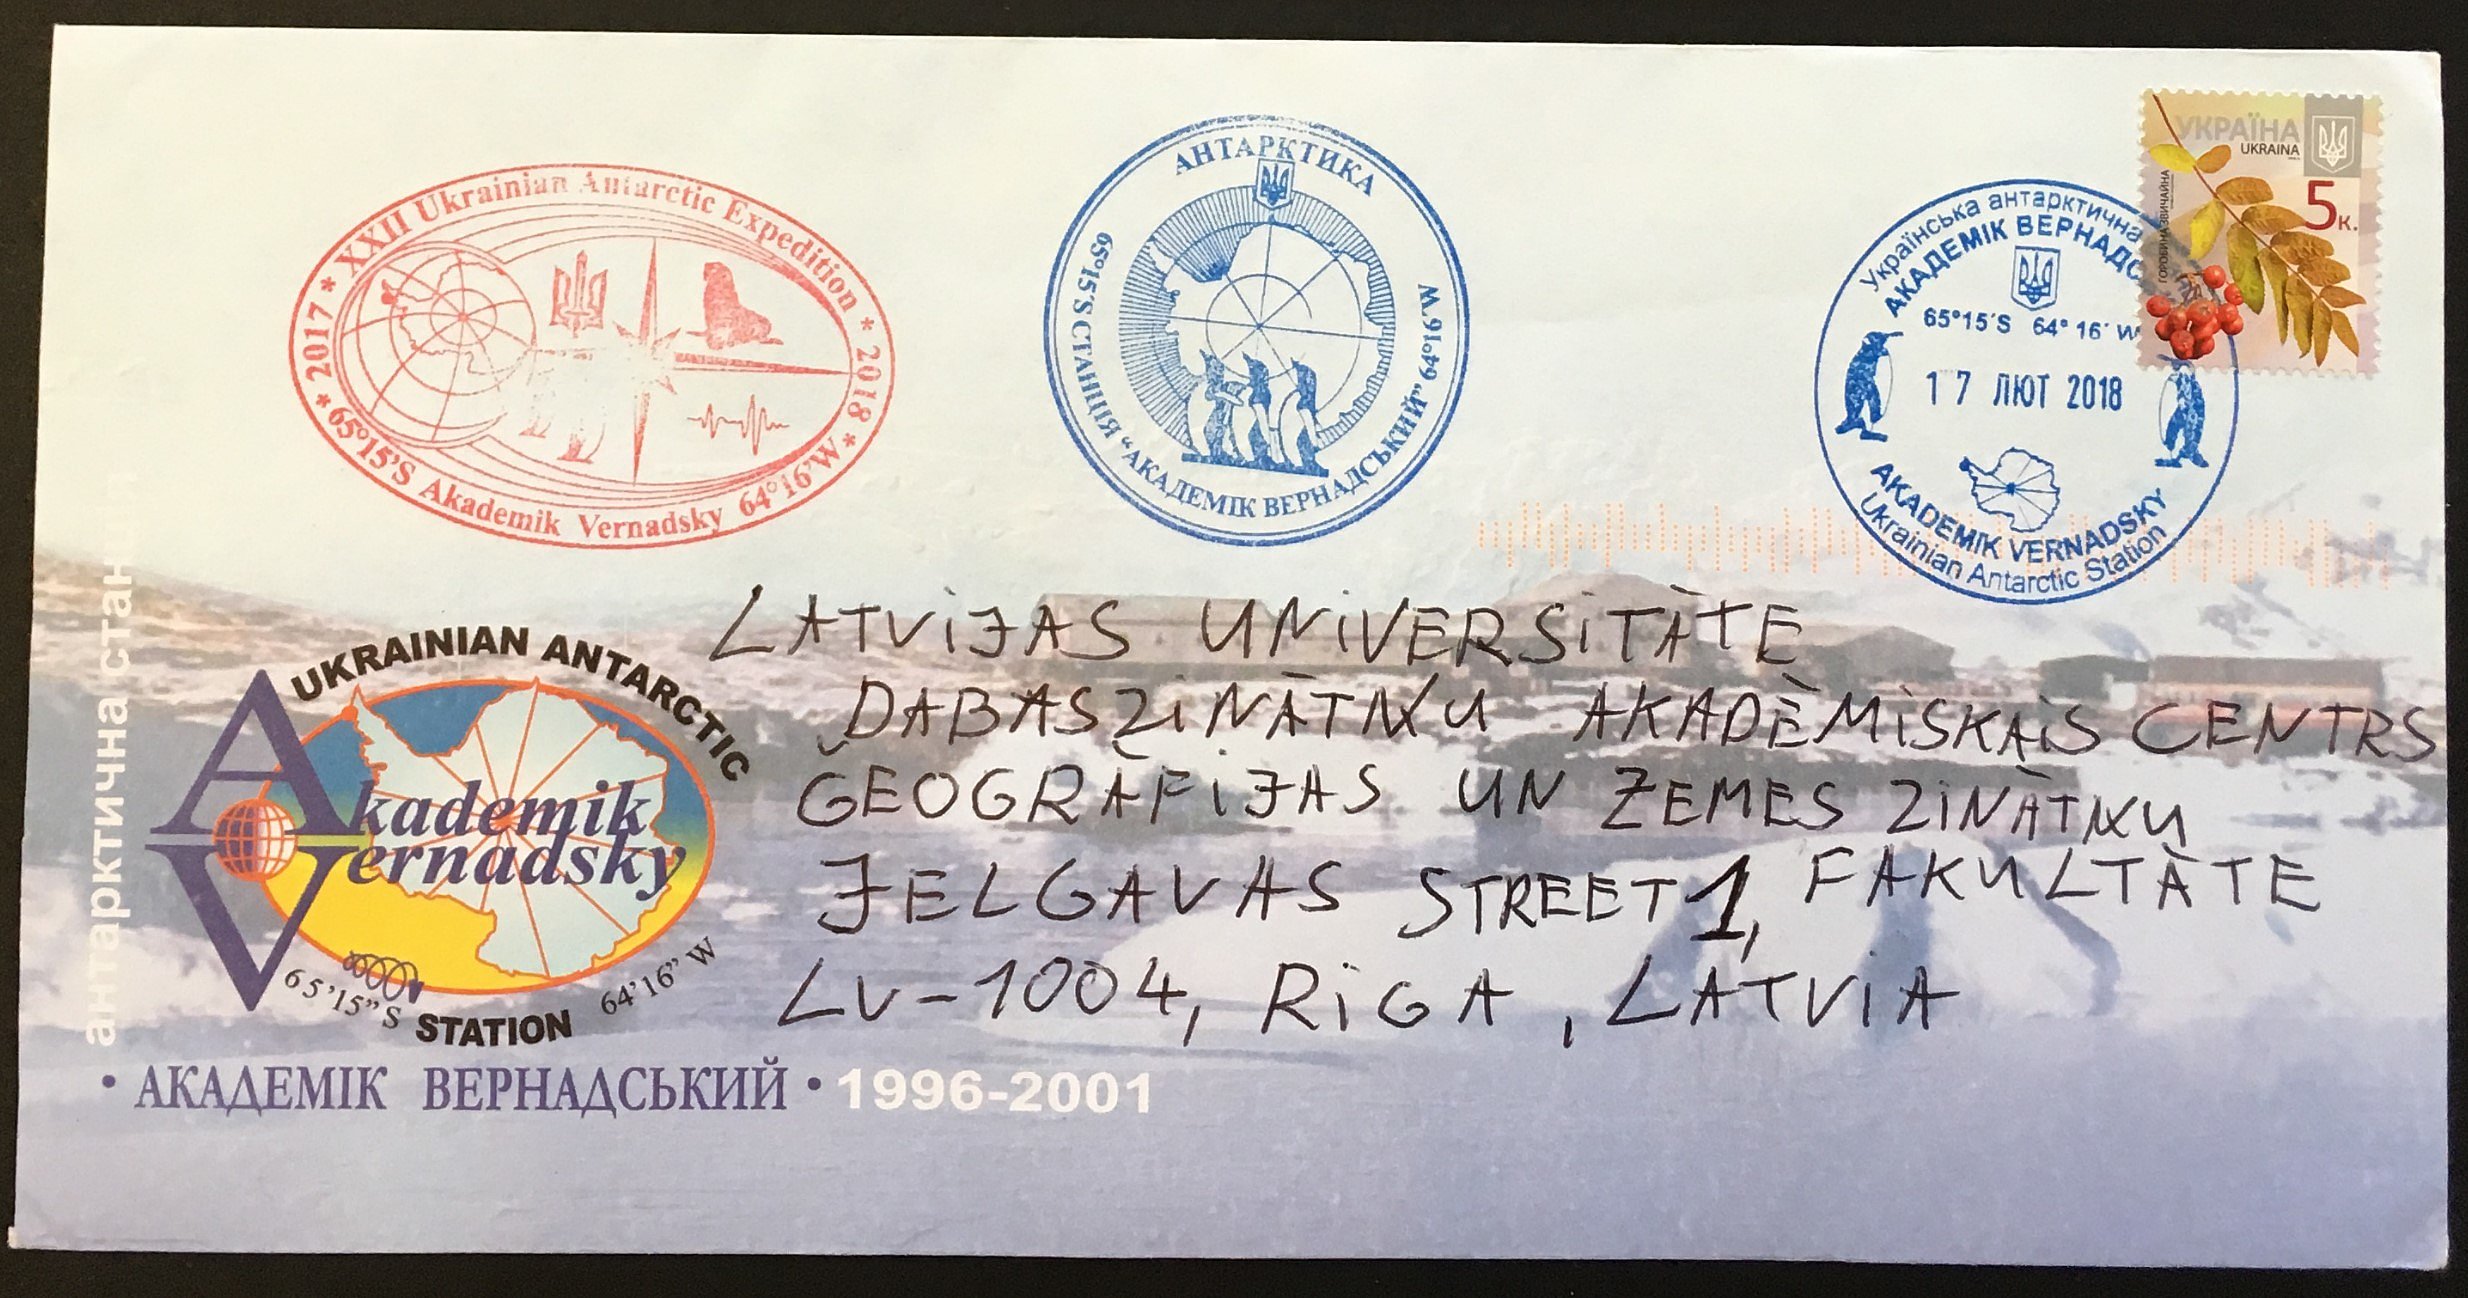 * 2017 * XXII Ukrainian Antarctic Expedition * 2018 *
65°15'S Akademik Vernadsky 64°16'W
АНТАРКТИКА
65°15'S СТАНЦІЯ "АКАДЕМІК ВЕРНАДСЬКИЙ" 64°16'W
УКРАЇНА
UKRAINA
5к.
ГОРОБИНА ЗВИЧАЙНА
Українська антарктична
АКАДЕМІК ВЕРНАДС
65°15'S 64°16'W
17 ЛЮТ 2018
AKADEMIK VERNADSKY
Ukrainian Antarctic Station
LATVIJAS UNIVERSITĀTE
DABASZINĀTŅU AKADĒMISKAIS CENTRS
ĢEOGRĀFIJAS UN ZEMES ZINĀTŅU
FAKULTĀTE
JELGAVAS STREET 1,
LV-1004, RIGA, LATVIA
антарктична стан
UKRAINIAN ANTARCTIC
Akademik
Vernadsky
65'15"S STATION 64'16"W
• АКАДЕМІК ВЕРНАДСЬКИЙ • 1996-2001